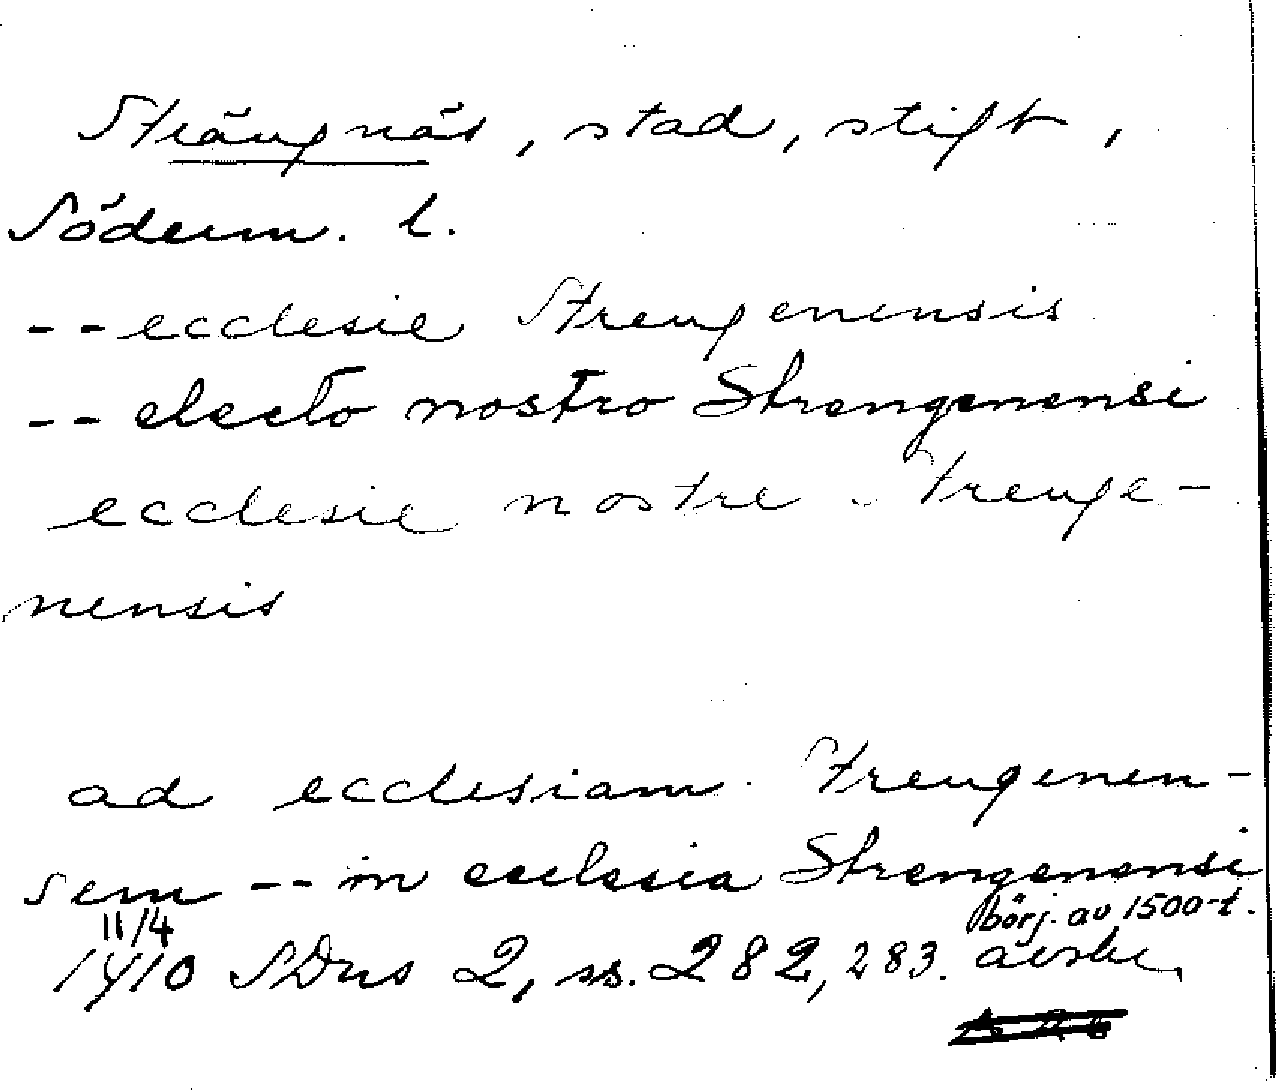 Strängnäs, stad, stift,
Söderm. l.
-- ecclesie Strengenensis
-- electo nostro Strengenensi
ecclesie nostre Strenge-
nensis
ad ecclesiam Strengenen-
sem -- in ecclesia Strengenensi
11/4 börj. av 1500-t.
1410 SDns 2, ss. 282, 283. avskr.